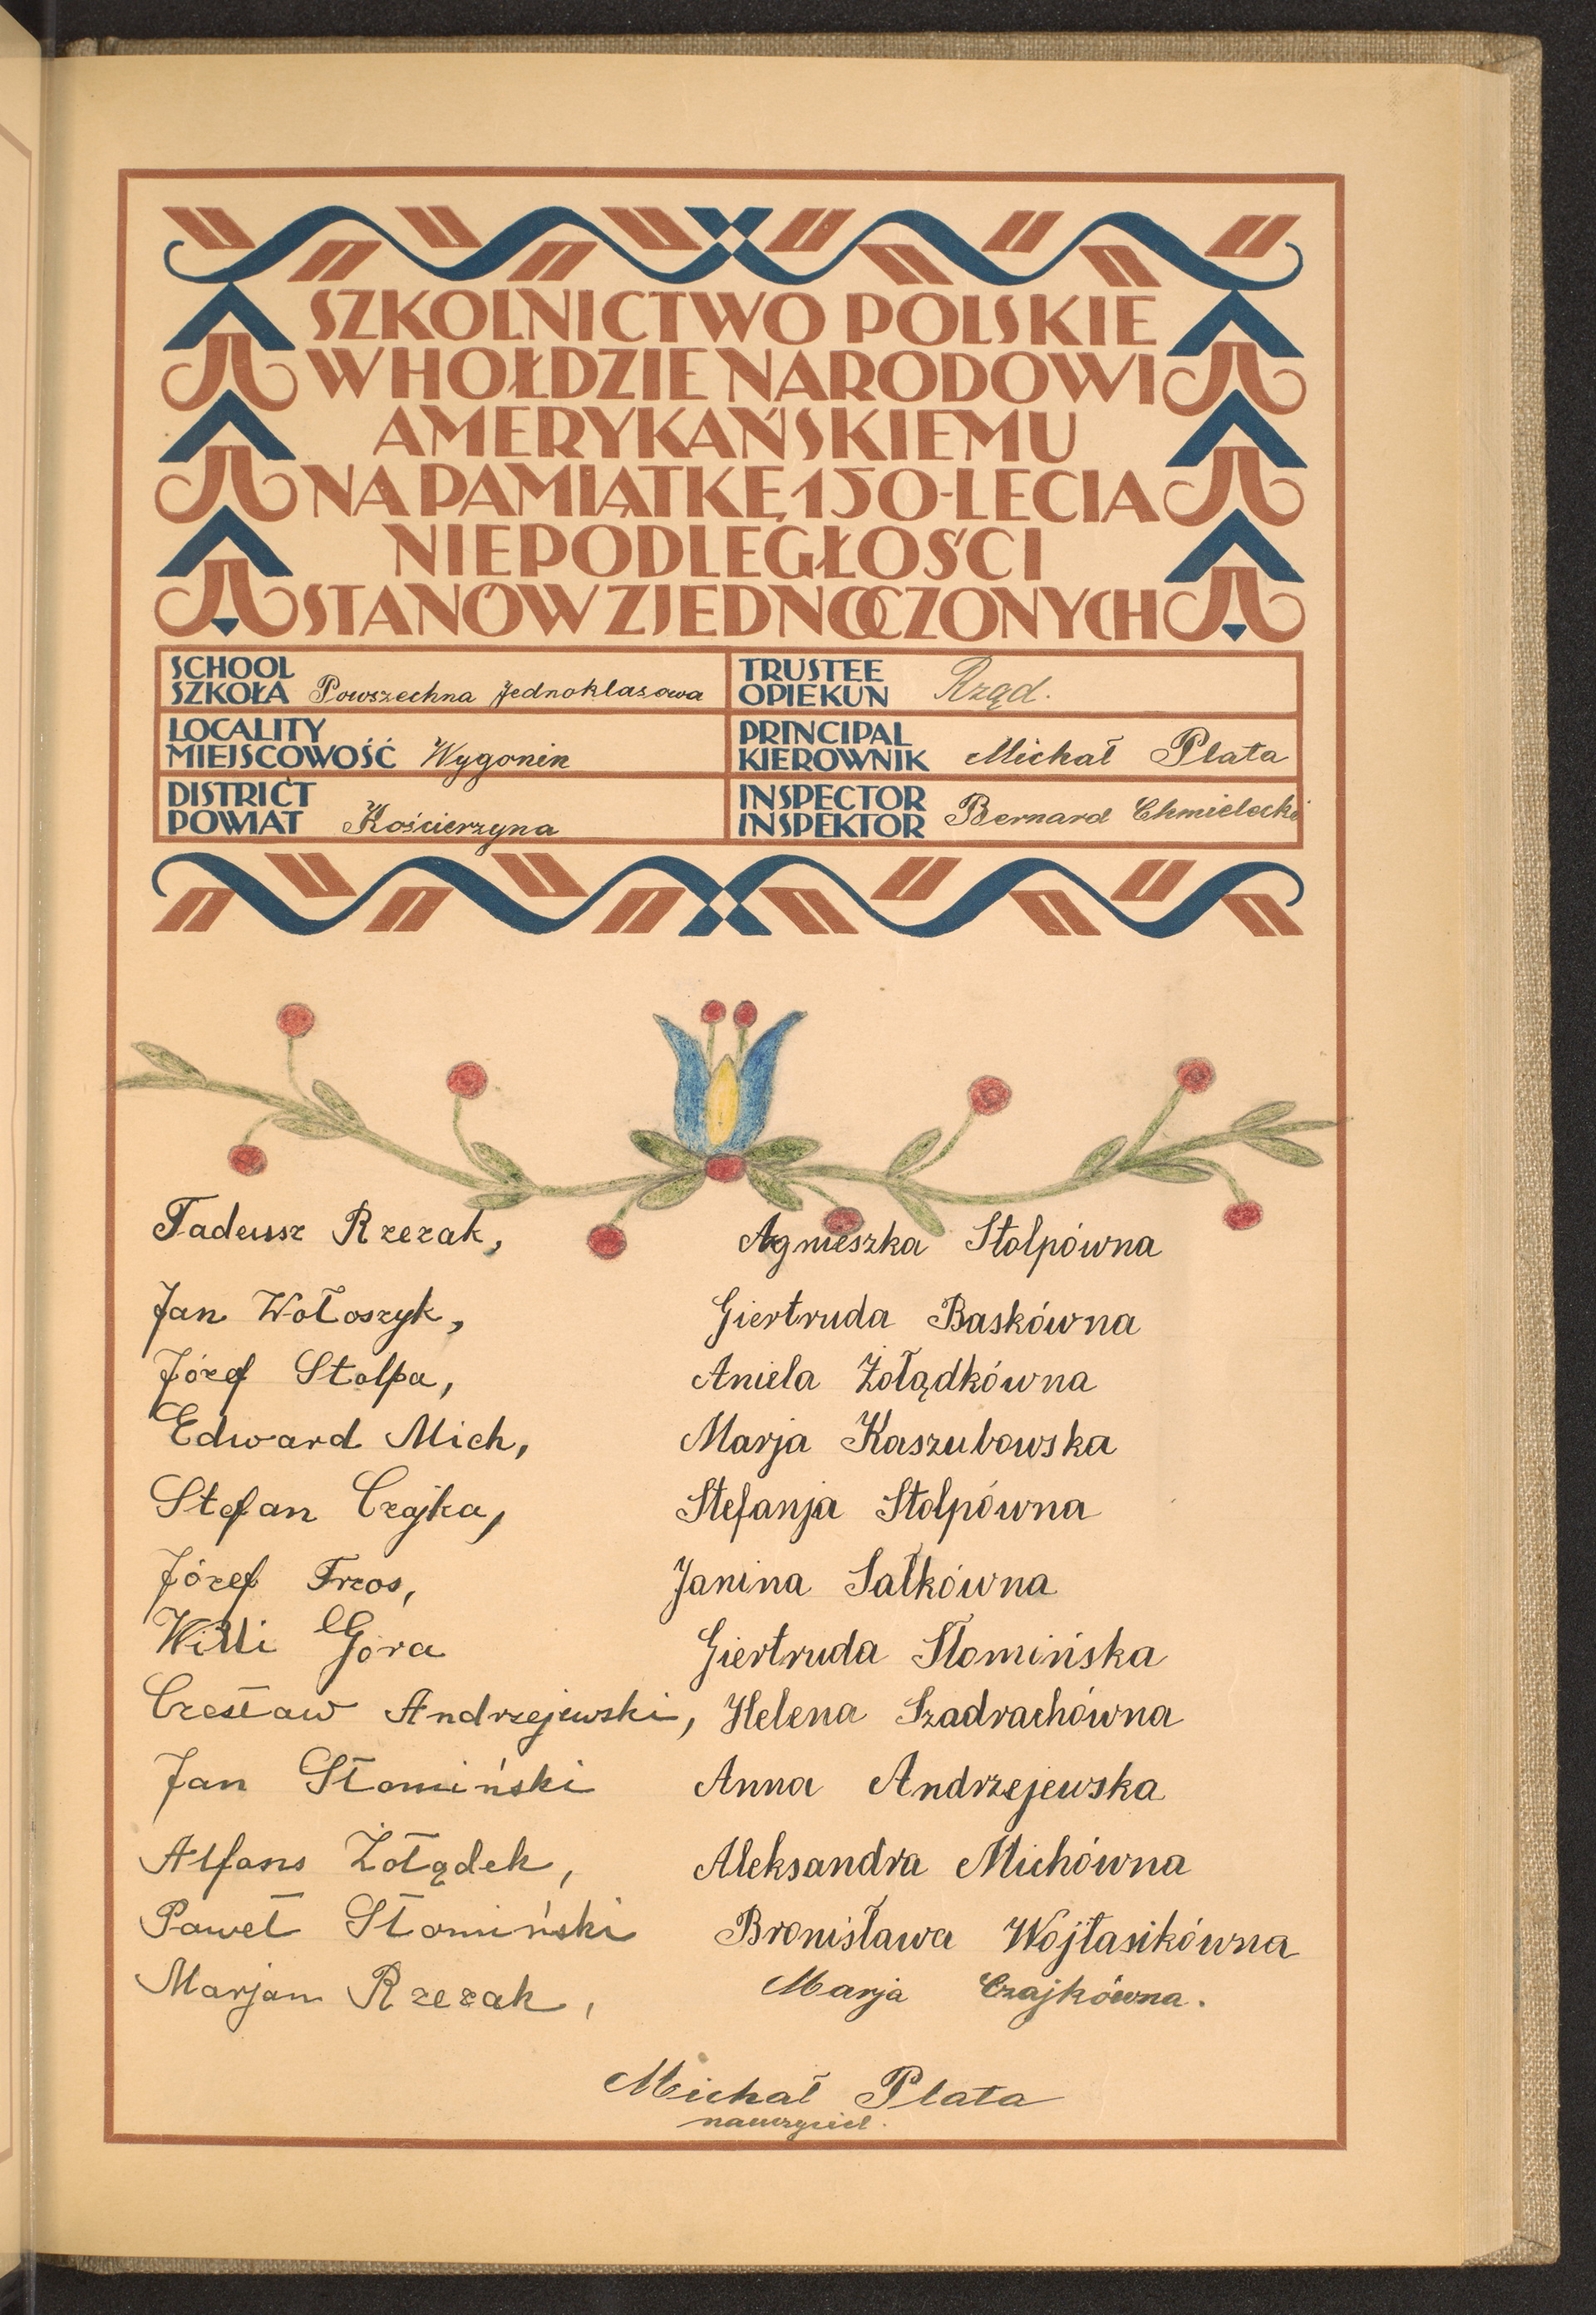 SZKOLNICTWO POLSKIE
W HOŁDZIE NARODOWI
AMERYKAŃSKIEMU
NA PAMIĄTKĘ 150-LECIA
NIEPODLEGŁOŚCI
STANÓW ZJEDNOCZONYCH
SCHOOL
SZKOŁA Powszechna Jednoklasowa
TRUSTEE
OPIEKUN Rząd.
LOCALITY
MIEJSCOWOŚĆ Wygonin
PRINCIPAL
KIEROWNIK Michał Plata
DISTRICT
POWIAT Kościerzyna
INSPECTOR
INSPEKTOR Bernard Chmielecki
Tadeusz Rzezak,
Jan Wołoszyk,
Józef Stolpa,
Edward Mich,
Stefan Czajka,
Józef Trzos,
Willi Góra
Czesław Andrzejewski,
Jan Słomiński
Alfons Żołądek,
Paweł Słomiński
Marjan Rzezak,
Agnieszka Stolpówna
Giertruda Baskówna
Aniela Żołądkówna
Marja Kaszubowska
Stefanja Stolpówna
Janina Sałkówna
Giertruda Słomińska
Helena Szadrachówna
Anna Andrzejewska
Aleksandra Michówna
Bronisława Wojtasikówna
Marja Czajkówna.
Michał Plata
nauczyciel.